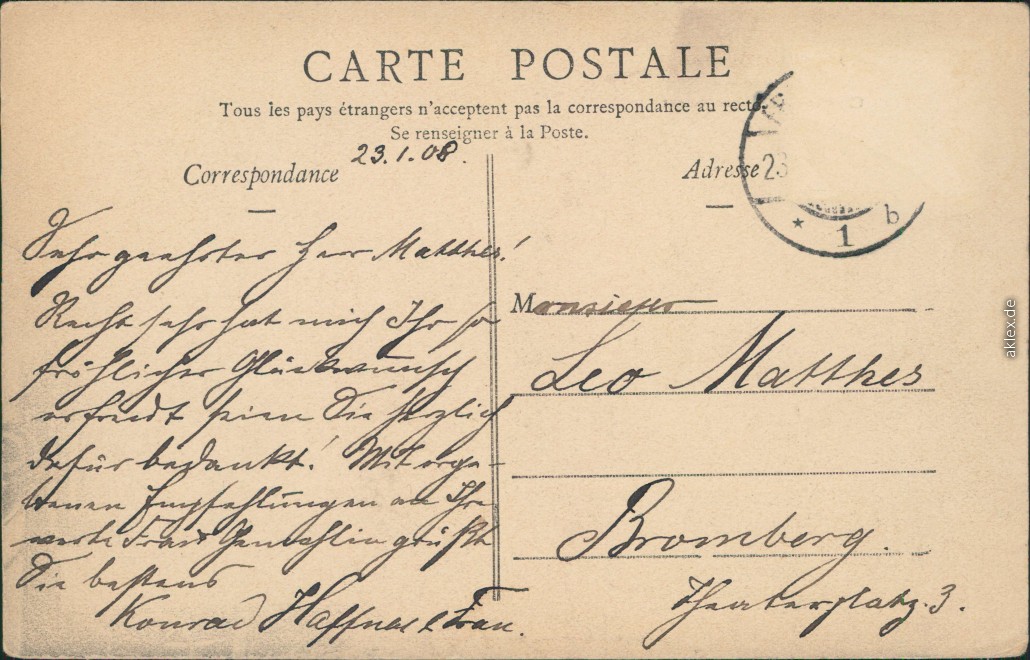 CARTE POSTALE
Tous les pays étrangers n'acceptent pas la correspondance au recto.
Se renseigner à la Poste.
23.1.08.
Correspondance
Sehr geehrter Herr Matthes!
Recht sehr hat mich Ihr so
fröhlicher Glückwunsch
erfreut seien Sie herzlich
dafür bedankt! Mit erge-
benen Empfehlungen an Ihre
werte Frau Gemahlin grüßt
Sie bestens
Konrad & Frau.
Adresse
23
* 1 b
Monsieur
Leo Matthes
Bromberg.
Theaterplatz. 3.
aklex.de